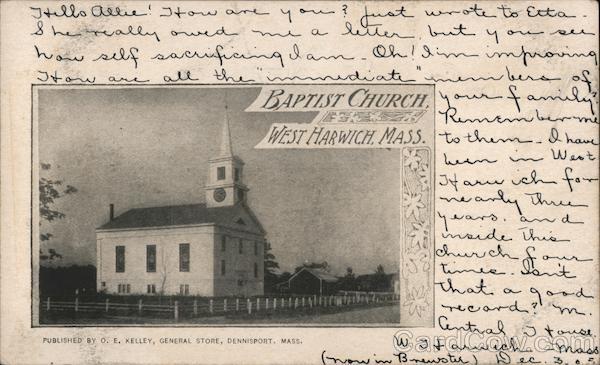 Hello Allie! How are you? Just wrote to Etta.
She really owed me a letter, but you see
how self sacrificing I am. Oh! I'm improving
How are all the "immediate" members of
your family?
Remember me
to them. I have
been in West
Harwich for
nearly three
years. and
inside this
church four
times. Isn't
that a good
record? M.
Central House
W. Harwich Mass
(now in Brewster) Dec. 3, 05
BAPTIST CHURCH,
WEST HARWICH, MASS.
PUBLISHED BY O. E. KELLEY, GENERAL STORE, DENNISPORT, MASS.
CardCow.com